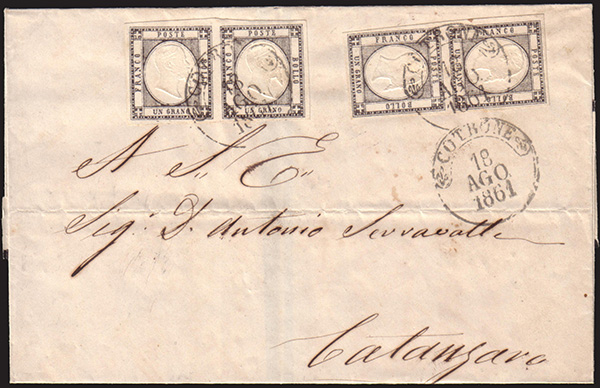 FRANCO POSTE BOLLO UN GRANO
FRANCO POSTE BOLLO UN GRANO
FRANCO POSTE BOLLO UN GRANO
FRANCO POSTE BOLLO UN GRANO
COTRONE
18
AGO
1861
A S. E.
Sig. D. Antonio Serravalle
Catanzaro